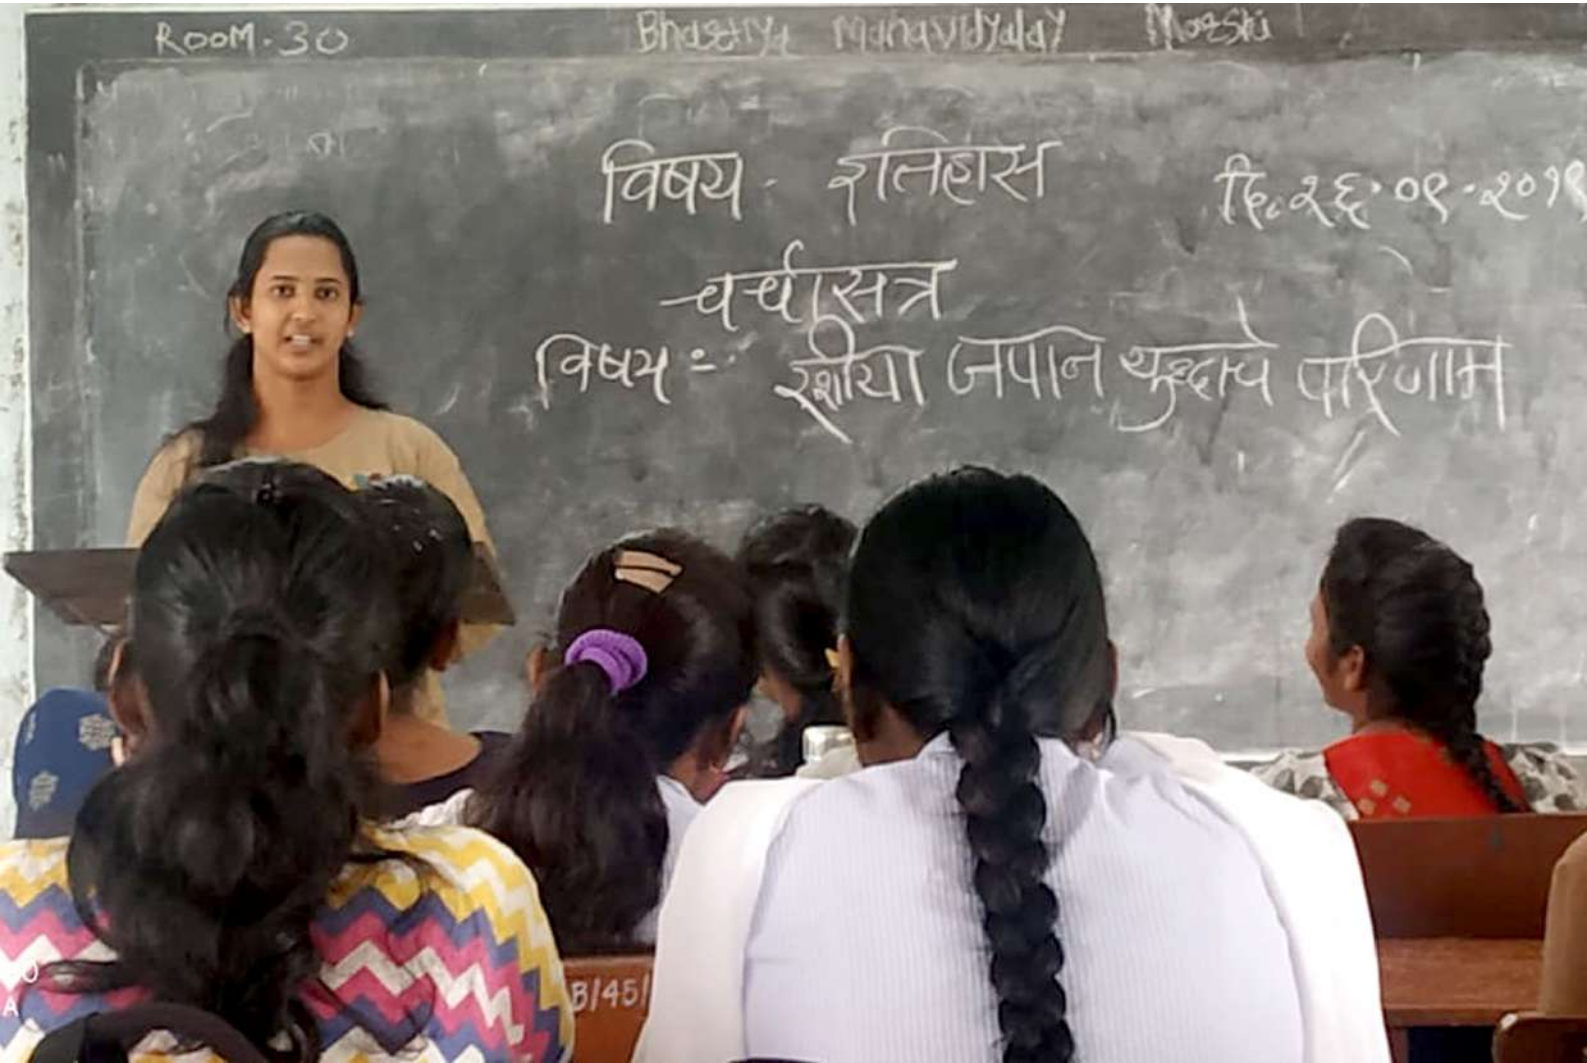 ROOM-30 Bhartiya Mahavidyalay Morshi
विषय - इतिहास दि. २६.०९.२०१९
चर्चासत्र
विषय :- रशीया जपान युध्दाचे परिणाम
B/45/